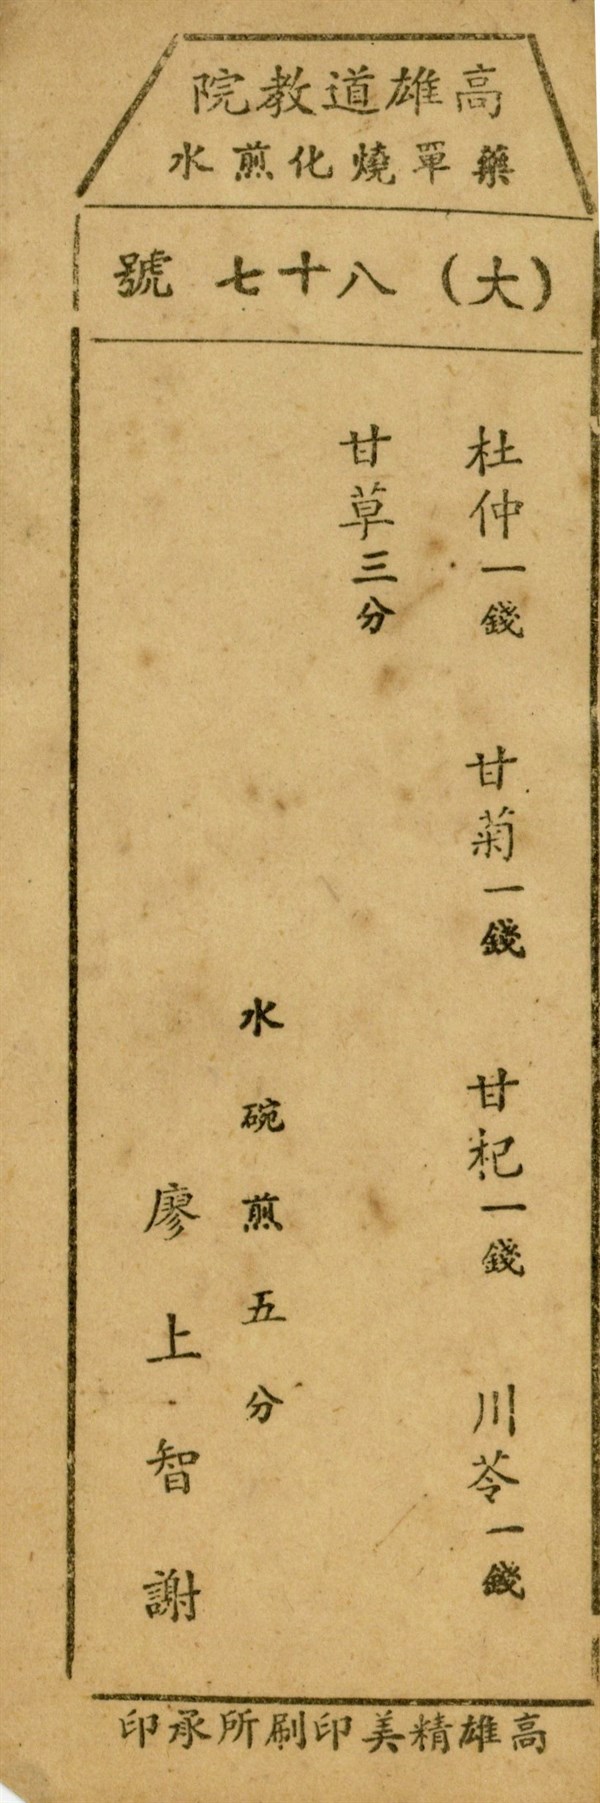 高雄道教院
藥單燒化煎水
(大)八十七號
杜仲一錢 甘菊一錢 甘杞一錢 川苓一錢
甘草三分
水碗煎五分
廖上智謝
高雄精美印刷所承印